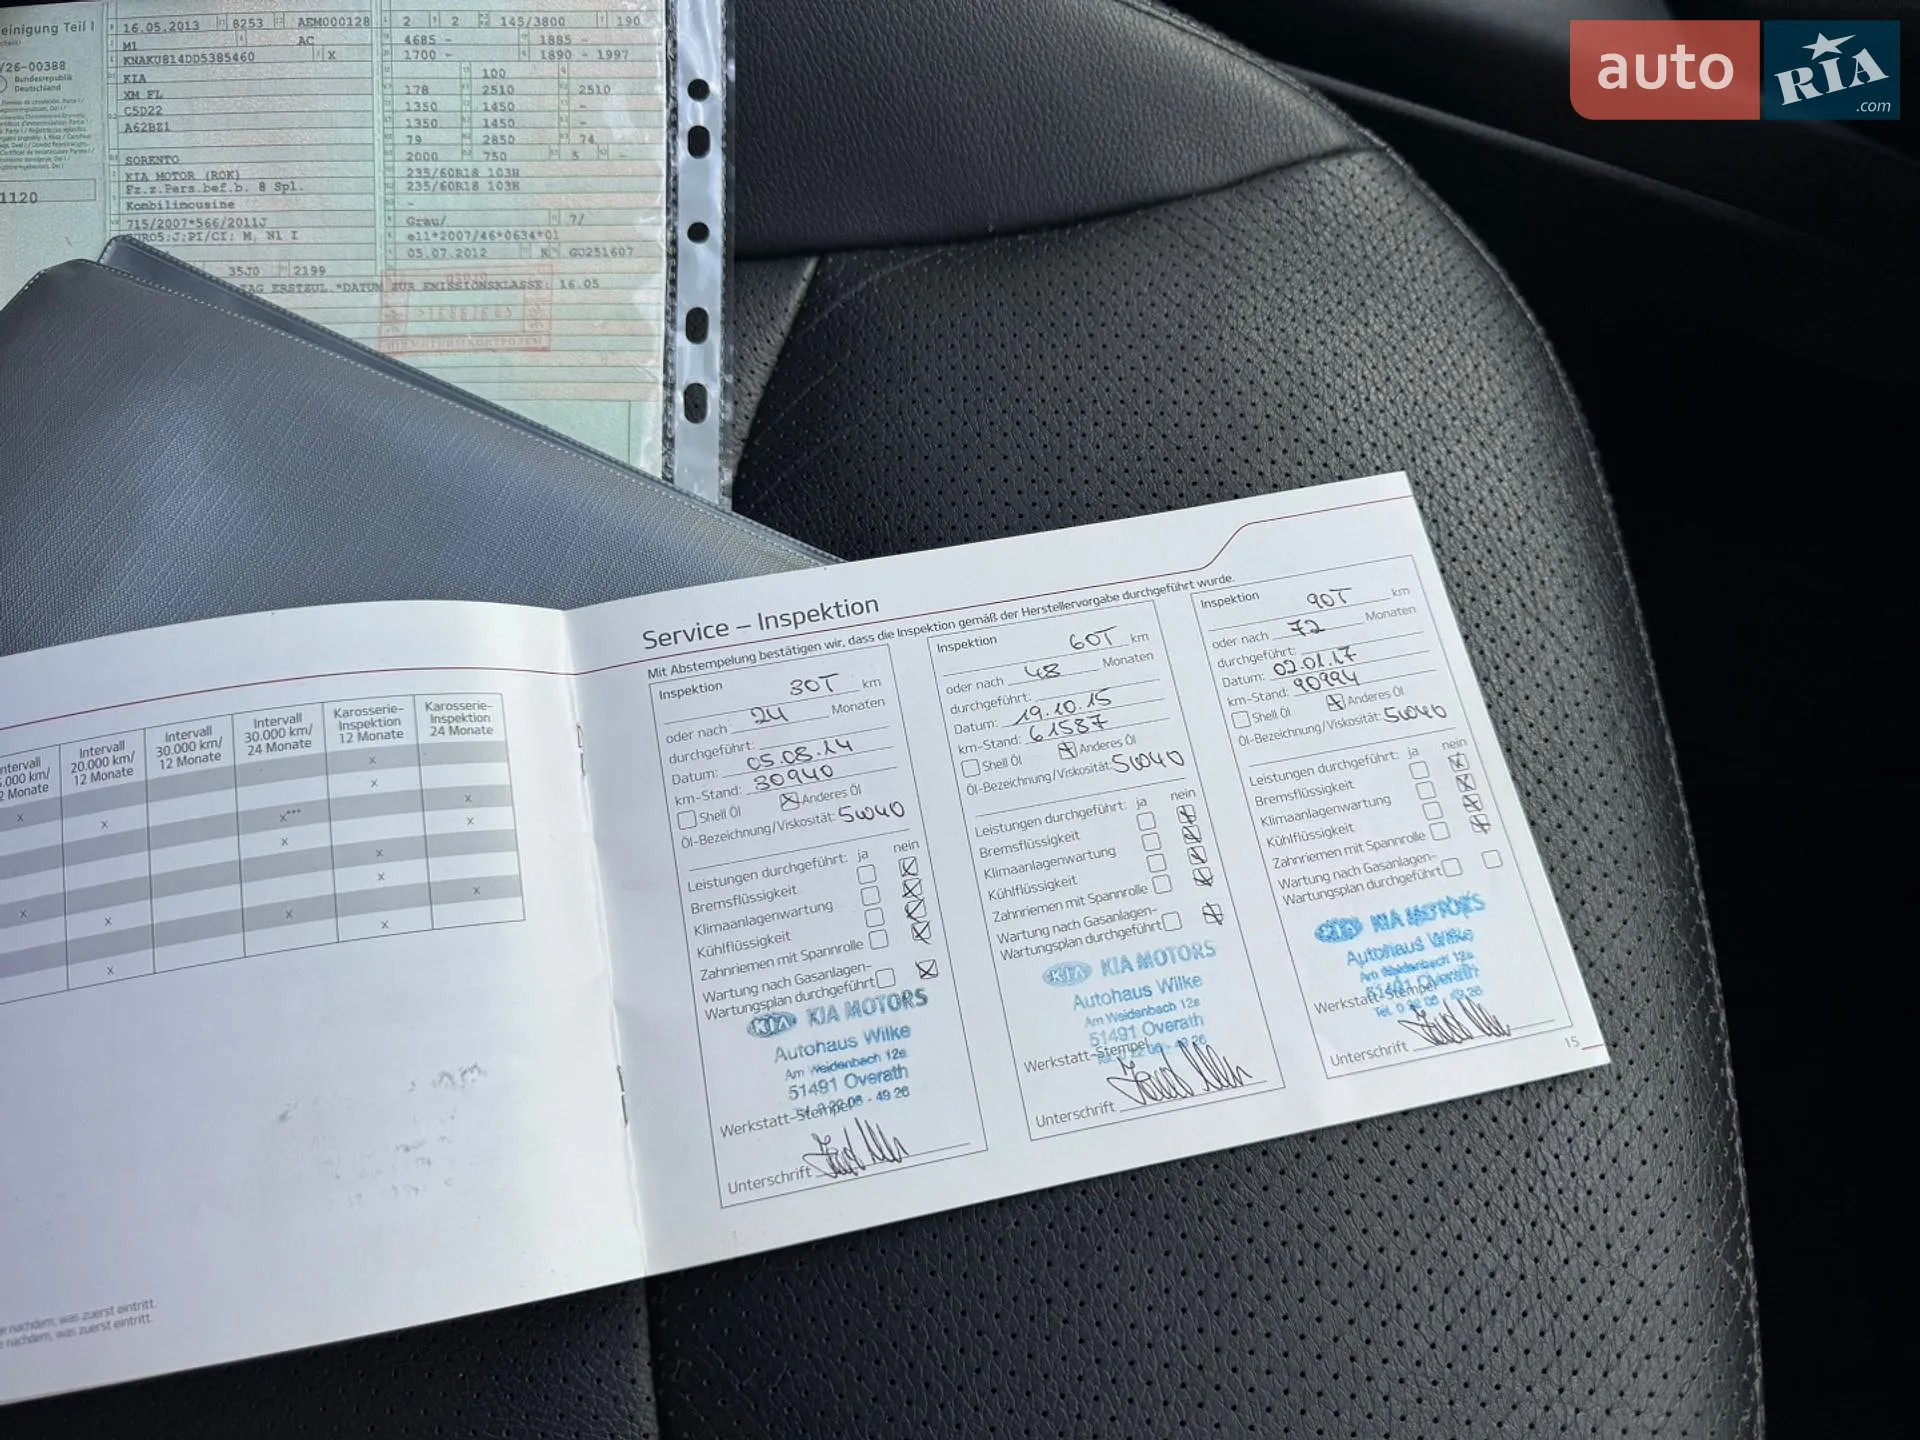 auto
RIA
.com
einigung Teil I
/26-00388
Bundesrepublik
Deutschland
1120
16.05.2013 8253 AEM000128
M1 AC
KNAKU814DD5385460 X
KIA
XM FL
C5D22
A62BZ1
SORENTO
KIA MOTOR (ROK)
Fz.z.Pers.bef.b. 8 Spl.
Kombilimousine
715/2007*566/2011J
EURO5;J;PI/CI; M, N1 I
35J0 2199
TAG ERSTZUL.*DATUM ZUR EMISSIONSKLASSE: 16.05
2 2 145/3800 190
4685 - 1885 -
1700 - 1890 - 1997
100
178 2510 2510
1350 1450 -
1350 1450 -
79 2850 74
2000 750 5 -
235/60R18 103H
235/60R18 103H
-
Grau/ 7/
e11*2007/46*0634*01
05.07.2012 X GU251607
Intervall
20.000 km/
12 Monate
Intervall
30.000 km/
12 Monate
Intervall
30.000 km/
24 Monate
Karosserie-
Inspektion
12 Monate
Karosserie-
Inspektion
24 Monate
x
x
x x x*** x
x x
x
x
x x x x
x
x
e nachdem, was zuerst eintritt.
e nachdem, was zuerst eintritt.
Service – Inspektion
Mit Abstempelung bestätigen wir, dass die Inspektion gemäß der Herstellervorgabe durchgeführt wurde.
Inspektion 30T km
oder nach 24 Monaten
durchgeführt:
Datum: 05.08.14
km-Stand: 30940
Shell Öl Anderes Öl
Öl-Bezeichnung/Viskosität: 5W40
Leistungen durchgeführt: ja nein
Bremsflüssigkeit
Klimaanlagenwartung
Kühlflüssigkeit
Zahnriemen mit Spannrolle
Wartung nach Gasanlagen-
Wartungsplan durchgeführt
KIA KIA MOTORS
Autohaus Wilke
Am Weidenbach 12a
51491 Overath
Werkstatt-Stempel
Unterschrift
Inspektion 60T km
oder nach 48 Monaten
durchgeführt:
Datum: 19.10.15
km-Stand: 61587
Shell Öl Anderes Öl
Öl-Bezeichnung/Viskosität: 5W40
Leistungen durchgeführt: ja nein
Bremsflüssigkeit
Klimaanlagenwartung
Kühlflüssigkeit
Zahnriemen mit Spannrolle
Wartung nach Gasanlagen-
Wartungsplan durchgeführt
KIA KIA MOTORS
Autohaus Wilke
Am Weidenbach 12a
51491 Overath
Werkstatt-Stempel
Unterschrift
Inspektion 90T km
oder nach 72 Monaten
durchgeführt:
Datum: 02.01.17
km-Stand: 90994
Shell Öl Anderes Öl
Öl-Bezeichnung/Viskosität: 5W40
Leistungen durchgeführt: ja nein
Bremsflüssigkeit
Klimaanlagenwartung
Kühlflüssigkeit
Zahnriemen mit Spannrolle
Wartung nach Gasanlagen-
Wartungsplan durchgeführt
KIA KIA MOTORS
Autohaus Wilke
Am Weidenbach 12a
51491 Overath
Werkstatt-Stempel
Unterschrift
15